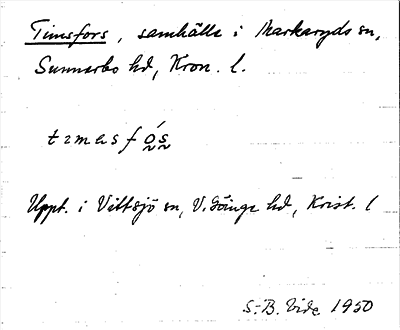 Timsfors, samhälle i Markaryds sn,
Sunnerbo hd, Kron. l.
Uppt. i Vittsjö sn, V. Göinge hd, Krist. l
S.-B. Vide 1950